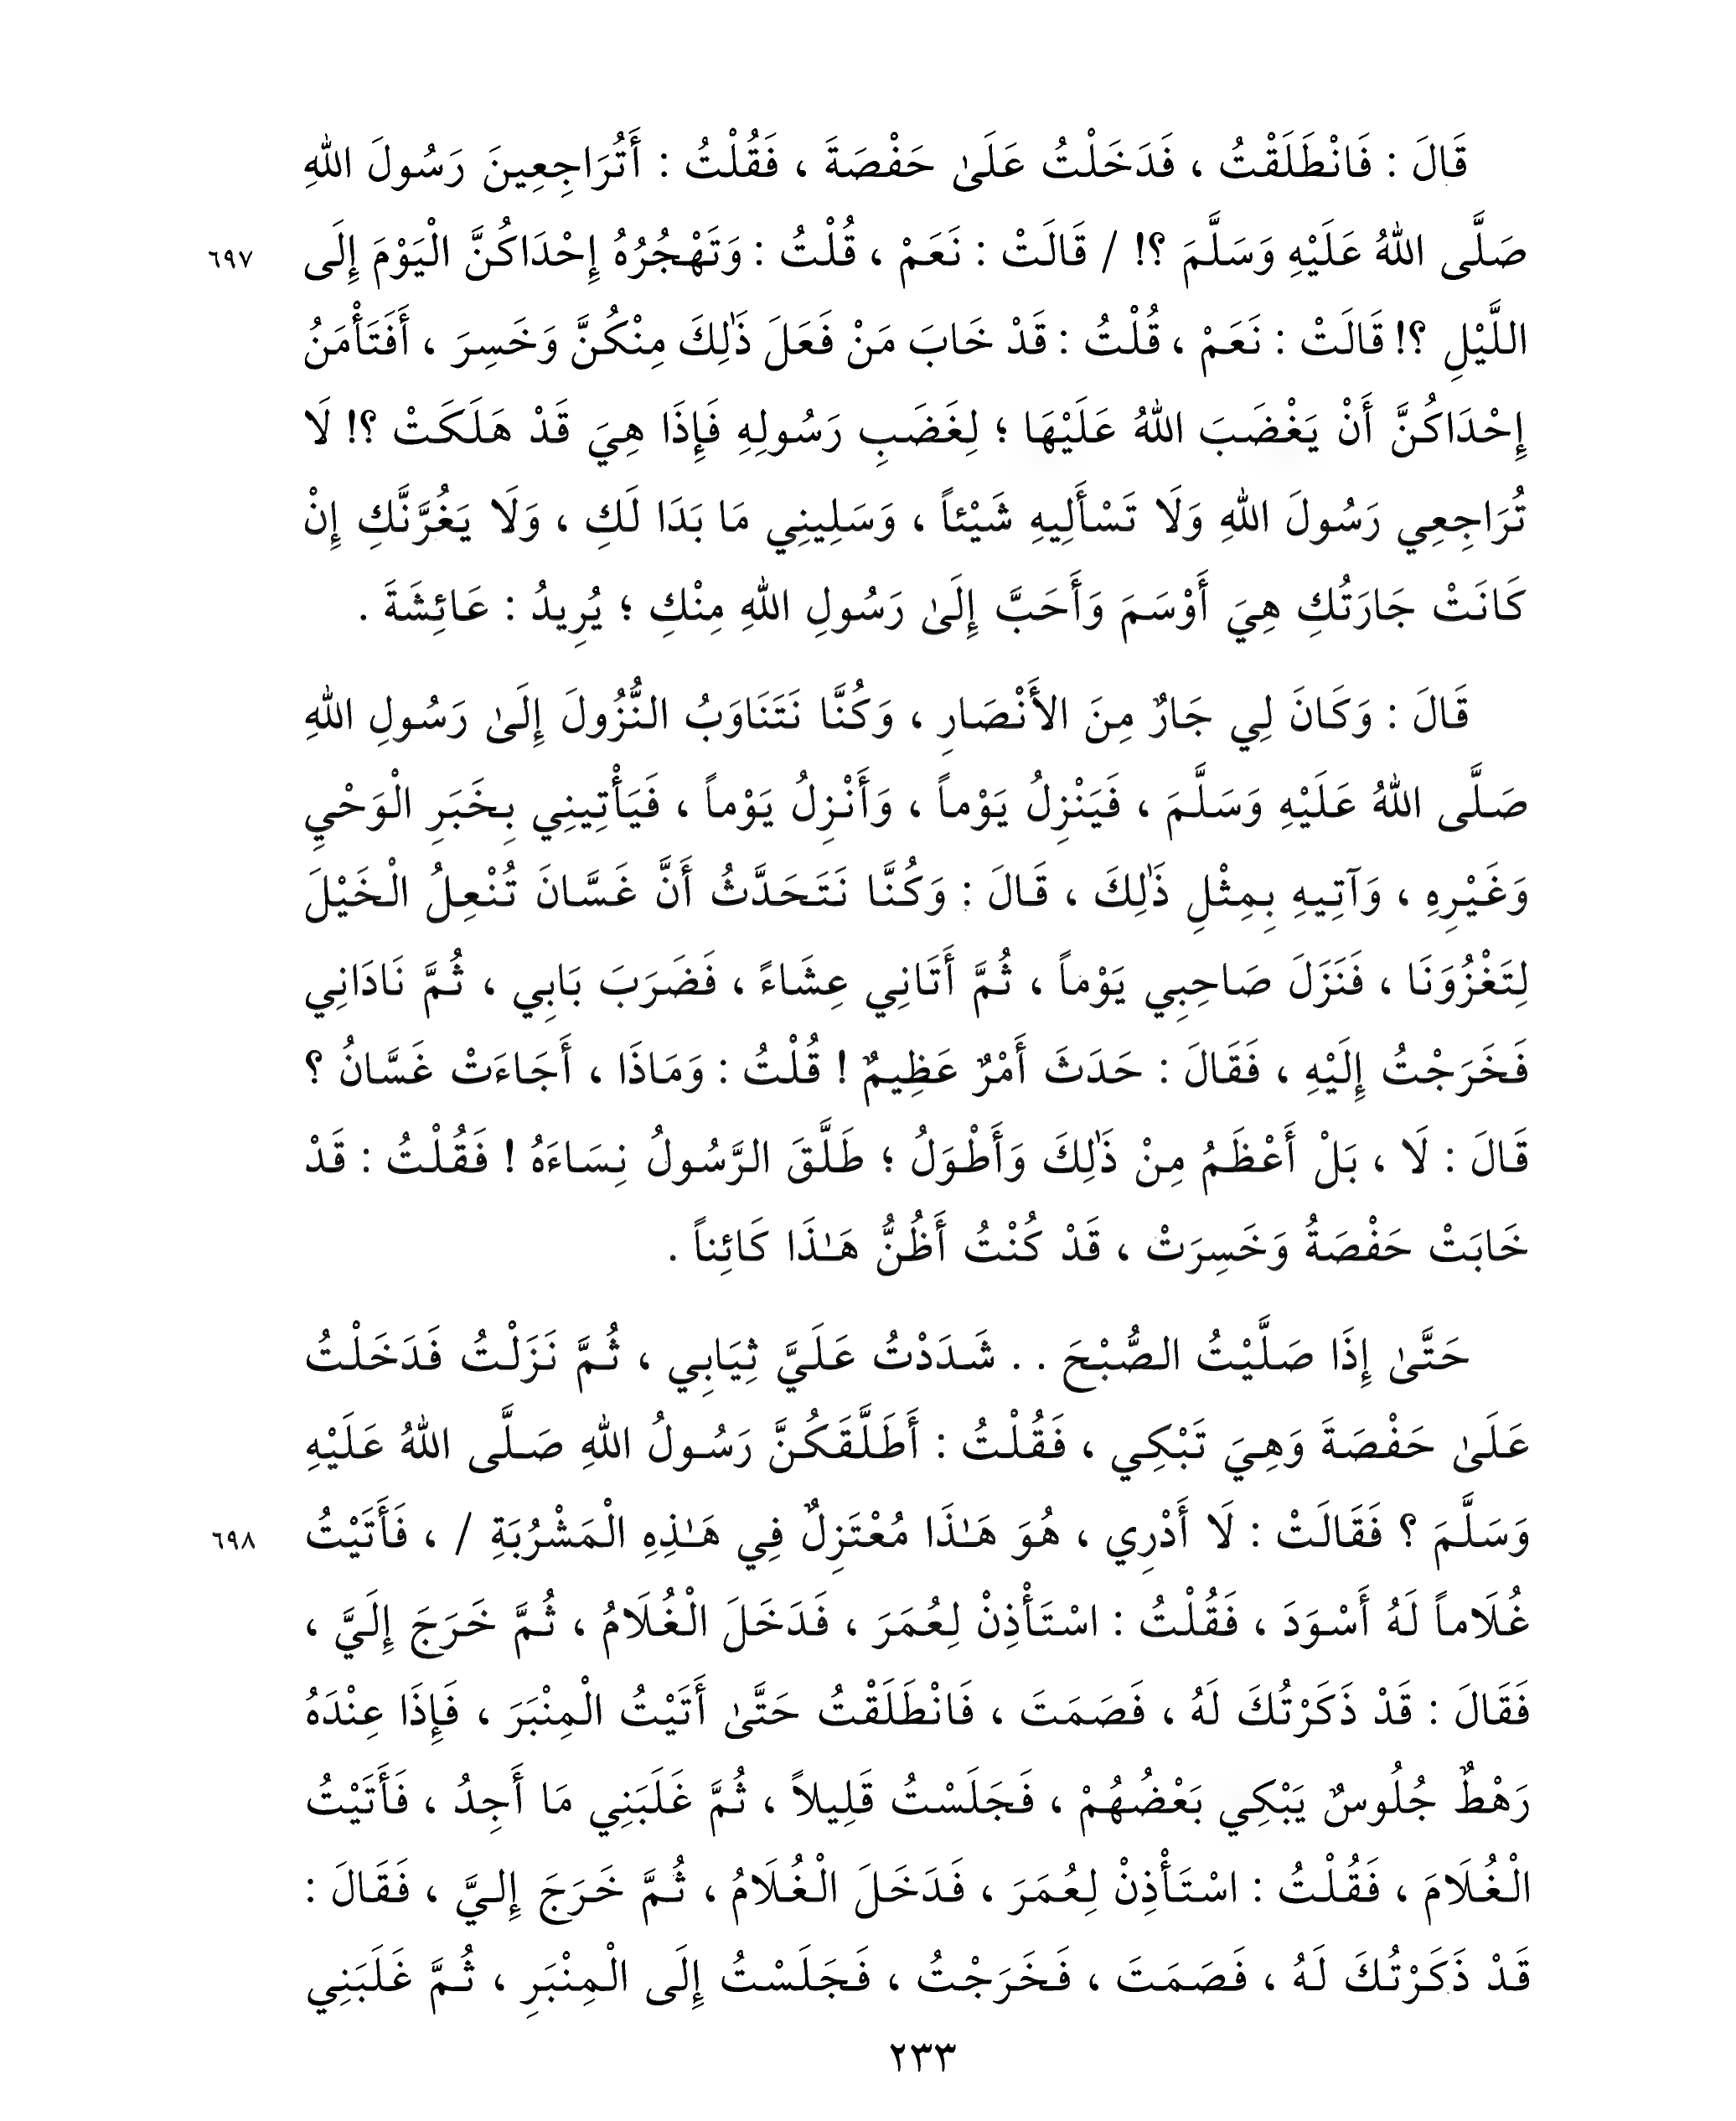 قَالَ : فَانْطَلَقْتُ ، فَدَخَلْتُ عَلَىٰ حَفْصَةَ ، فَقُلْتُ : أَتُرَاجِعِينَ رَسُولَ اللهِ
صَلَّى اللهُ عَلَيْهِ وَسَلَّمَ ؟! / قَالَتْ : نَعَمْ ، قُلْتُ : وَتَهْجُرُهُ إِحْدَاكُنَّ الْيَوْمَ إِلَى ٦٩٧
اللَّيْلِ ؟! قَالَتْ : نَعَمْ ، قُلْتُ : قَدْ خَابَ مَنْ فَعَلَ ذَٰلِكَ مِنْكُنَّ وَخَسِرَ ، أَفَتَأْمَنُ
إِحْدَاكُنَّ أَنْ يَغْضَبَ اللهُ عَلَيْهَا ؛ لِغَضَبِ رَسُولِهِ فَإِذَا هِيَ قَدْ هَلَكَتْ ؟! لَا
تُرَاجِعِي رَسُولَ اللهِ وَلَا تَسْأَلِيهِ شَيْئاً ، وَسَلِينِي مَا بَدَا لَكِ ، وَلَا يَغُرَّنَّكِ إِنْ
كَانَتْ جَارَتُكِ هِيَ أَوْسَمَ وَأَحَبَّ إِلَىٰ رَسُولِ اللهِ مِنْكِ ؛ يُرِيدُ : عَائِشَةَ .
قَالَ : وَكَانَ لِي جَارٌ مِنَ الأَنْصَارِ ، وَكُنَّا نَتَنَاوَبُ النُّزُولَ إِلَىٰ رَسُولِ اللهِ
صَلَّى اللهُ عَلَيْهِ وَسَلَّمَ ، فَيَنْزِلُ يَوْماً ، وَأَنْزِلُ يَوْماً ، فَيَأْتِينِي بِخَبَرِ الْوَحْيِ
وَغَيْرِهِ ، وَآتِيهِ بِمِثْلِ ذَٰلِكَ ، قَالَ : وَكُنَّا نَتَحَدَّثُ أَنَّ غَسَّانَ تُنْعِلُ الْخَيْلَ
لِتَغْزُوَنَا ، فَنَزَلَ صَاحِبِي يَوْماً ، ثُمَّ أَتَانِي عِشَاءً ، فَضَرَبَ بَابِي ، ثُمَّ نَادَانِي
فَخَرَجْتُ إِلَيْهِ ، فَقَالَ : حَدَثَ أَمْرٌ عَظِيمٌ ! قُلْتُ : وَمَاذَا ، أَجَاءَتْ غَسَّانُ ؟
قَالَ : لَا ، بَلْ أَعْظَمُ مِنْ ذَٰلِكَ وَأَطْوَلُ ؛ طَلَّقَ الرَّسُولُ نِسَاءَهُ ! فَقُلْتُ : قَدْ
خَابَتْ حَفْصَةُ وَخَسِرَتْ ، قَدْ كُنْتُ أَظُنُّ هَـٰذَا كَائِناً .
حَتَّىٰ إِذَا صَلَّيْتُ الصُّبْحَ . . شَدَدْتُ عَلَيَّ ثِيَابِي ، ثُمَّ نَزَلْتُ فَدَخَلْتُ
عَلَىٰ حَفْصَةَ وَهِيَ تَبْكِي ، فَقُلْتُ : أَطَلَّقَكُنَّ رَسُولُ اللهِ صَلَّى اللهُ عَلَيْهِ
وَسَلَّمَ ؟ فَقَالَتْ : لَا أَدْرِي ، هُوَ هَـٰذَا مُعْتَزِلٌ فِي هَـٰذِهِ الْمَشْرُبَةِ / ، فَأَتَيْتُ ٦٩٨
غُلَاماً لَهُ أَسْوَدَ ، فَقُلْتُ : اسْتَأْذِنْ لِعُمَرَ ، فَدَخَلَ الْغُلَامُ ، ثُمَّ خَرَجَ إِلَيَّ ،
فَقَالَ : قَدْ ذَكَرْتُكَ لَهُ ، فَصَمَتَ ، فَانْطَلَقْتُ حَتَّىٰ أَتَيْتُ الْمِنْبَرَ ، فَإِذَا عِنْدَهُ
رَهْطٌ جُلُوسٌ يَبْكِي بَعْضُهُمْ ، فَجَلَسْتُ قَلِيلاً ، ثُمَّ غَلَبَنِي مَا أَجِدُ ، فَأَتَيْتُ
الْغُلَامَ ، فَقُلْتُ : اسْتَأْذِنْ لِعُمَرَ ، فَدَخَلَ الْغُلَامُ ، ثُمَّ خَرَجَ إِليَّ ، فَقَالَ :
قَدْ ذَكَرْتُكَ لَهُ ، فَصَمَتَ ، فَخَرَجْتُ ، فَجَلَسْتُ إِلَى الْمِنْبَرِ ، ثُمَّ غَلَبَنِي
٢٣٣